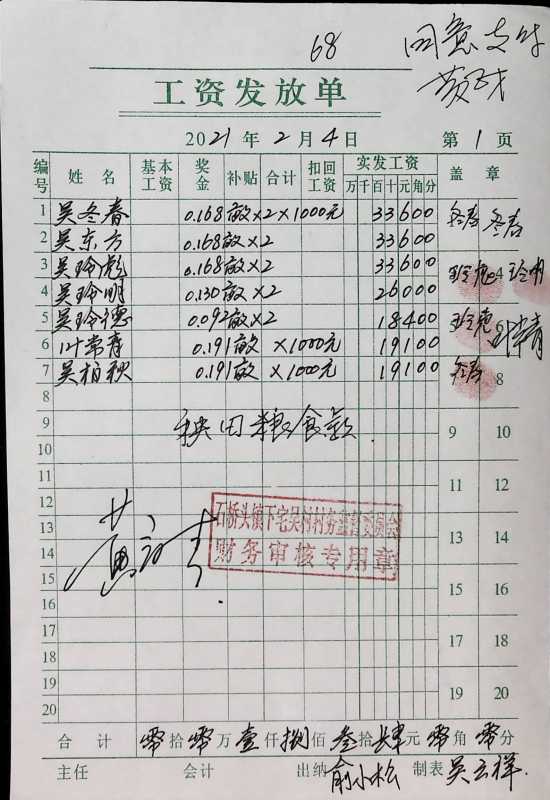 68
同意支付
工资发放单
2021年2月4日 第1页
编号 姓名 基本工资 奖金 补贴 合计 扣回工资 实发工资 万千百十元角分 盖章
1 吴冬春 0.168亩×2×1000元 33600 冬春 冬春
2 吴东方 0.168亩×2 33600
3 吴玲彪 0.168亩×2 33600 4
4 吴玲明 0.130亩×2 26000 玲明
5 吴玲德 0.092亩×2 18400 玲德 6
6 叶常青 0.191亩 ×1000元 19100 叶常青
7 吴柏秋 0.191亩 ×1000元 19100 冬春 8
8
9 秧田粮食款 9 10
10
11 11 12
12
13 石桥头镇下宅吴村村务监督委员会 13 14
14 财务审核专用章
15 15 16
16
17 17 18
18
19 19 20
20
合计 零拾零万壹仟捌佰叁拾肆元零角零分
主任 会计 出纳 俞小松 制表 吴云祥